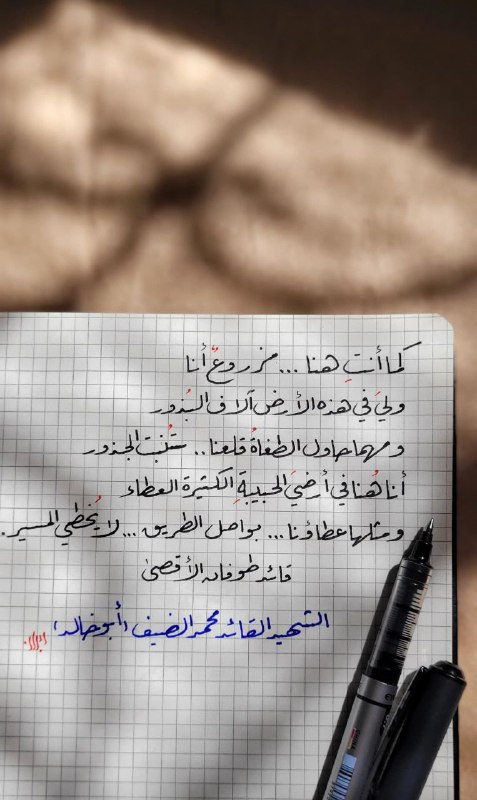 كما أنتِ هنا ... مزروعٌ أنا
وليَ في هذه الأرض آلاف البُذور
ومهما حاول الطغاةُ قلعنا.. ستُنبت الجذور
أنا هُنا في أرضيَ الحبيبةِ الكثيرة العطاء
ومثلها عطاؤنا ... بواصل الطريق ... لا يُخطي المسير.
قائد طوفان الأقصى
الشهيد القائد محمد الضيف (أبو خالد)